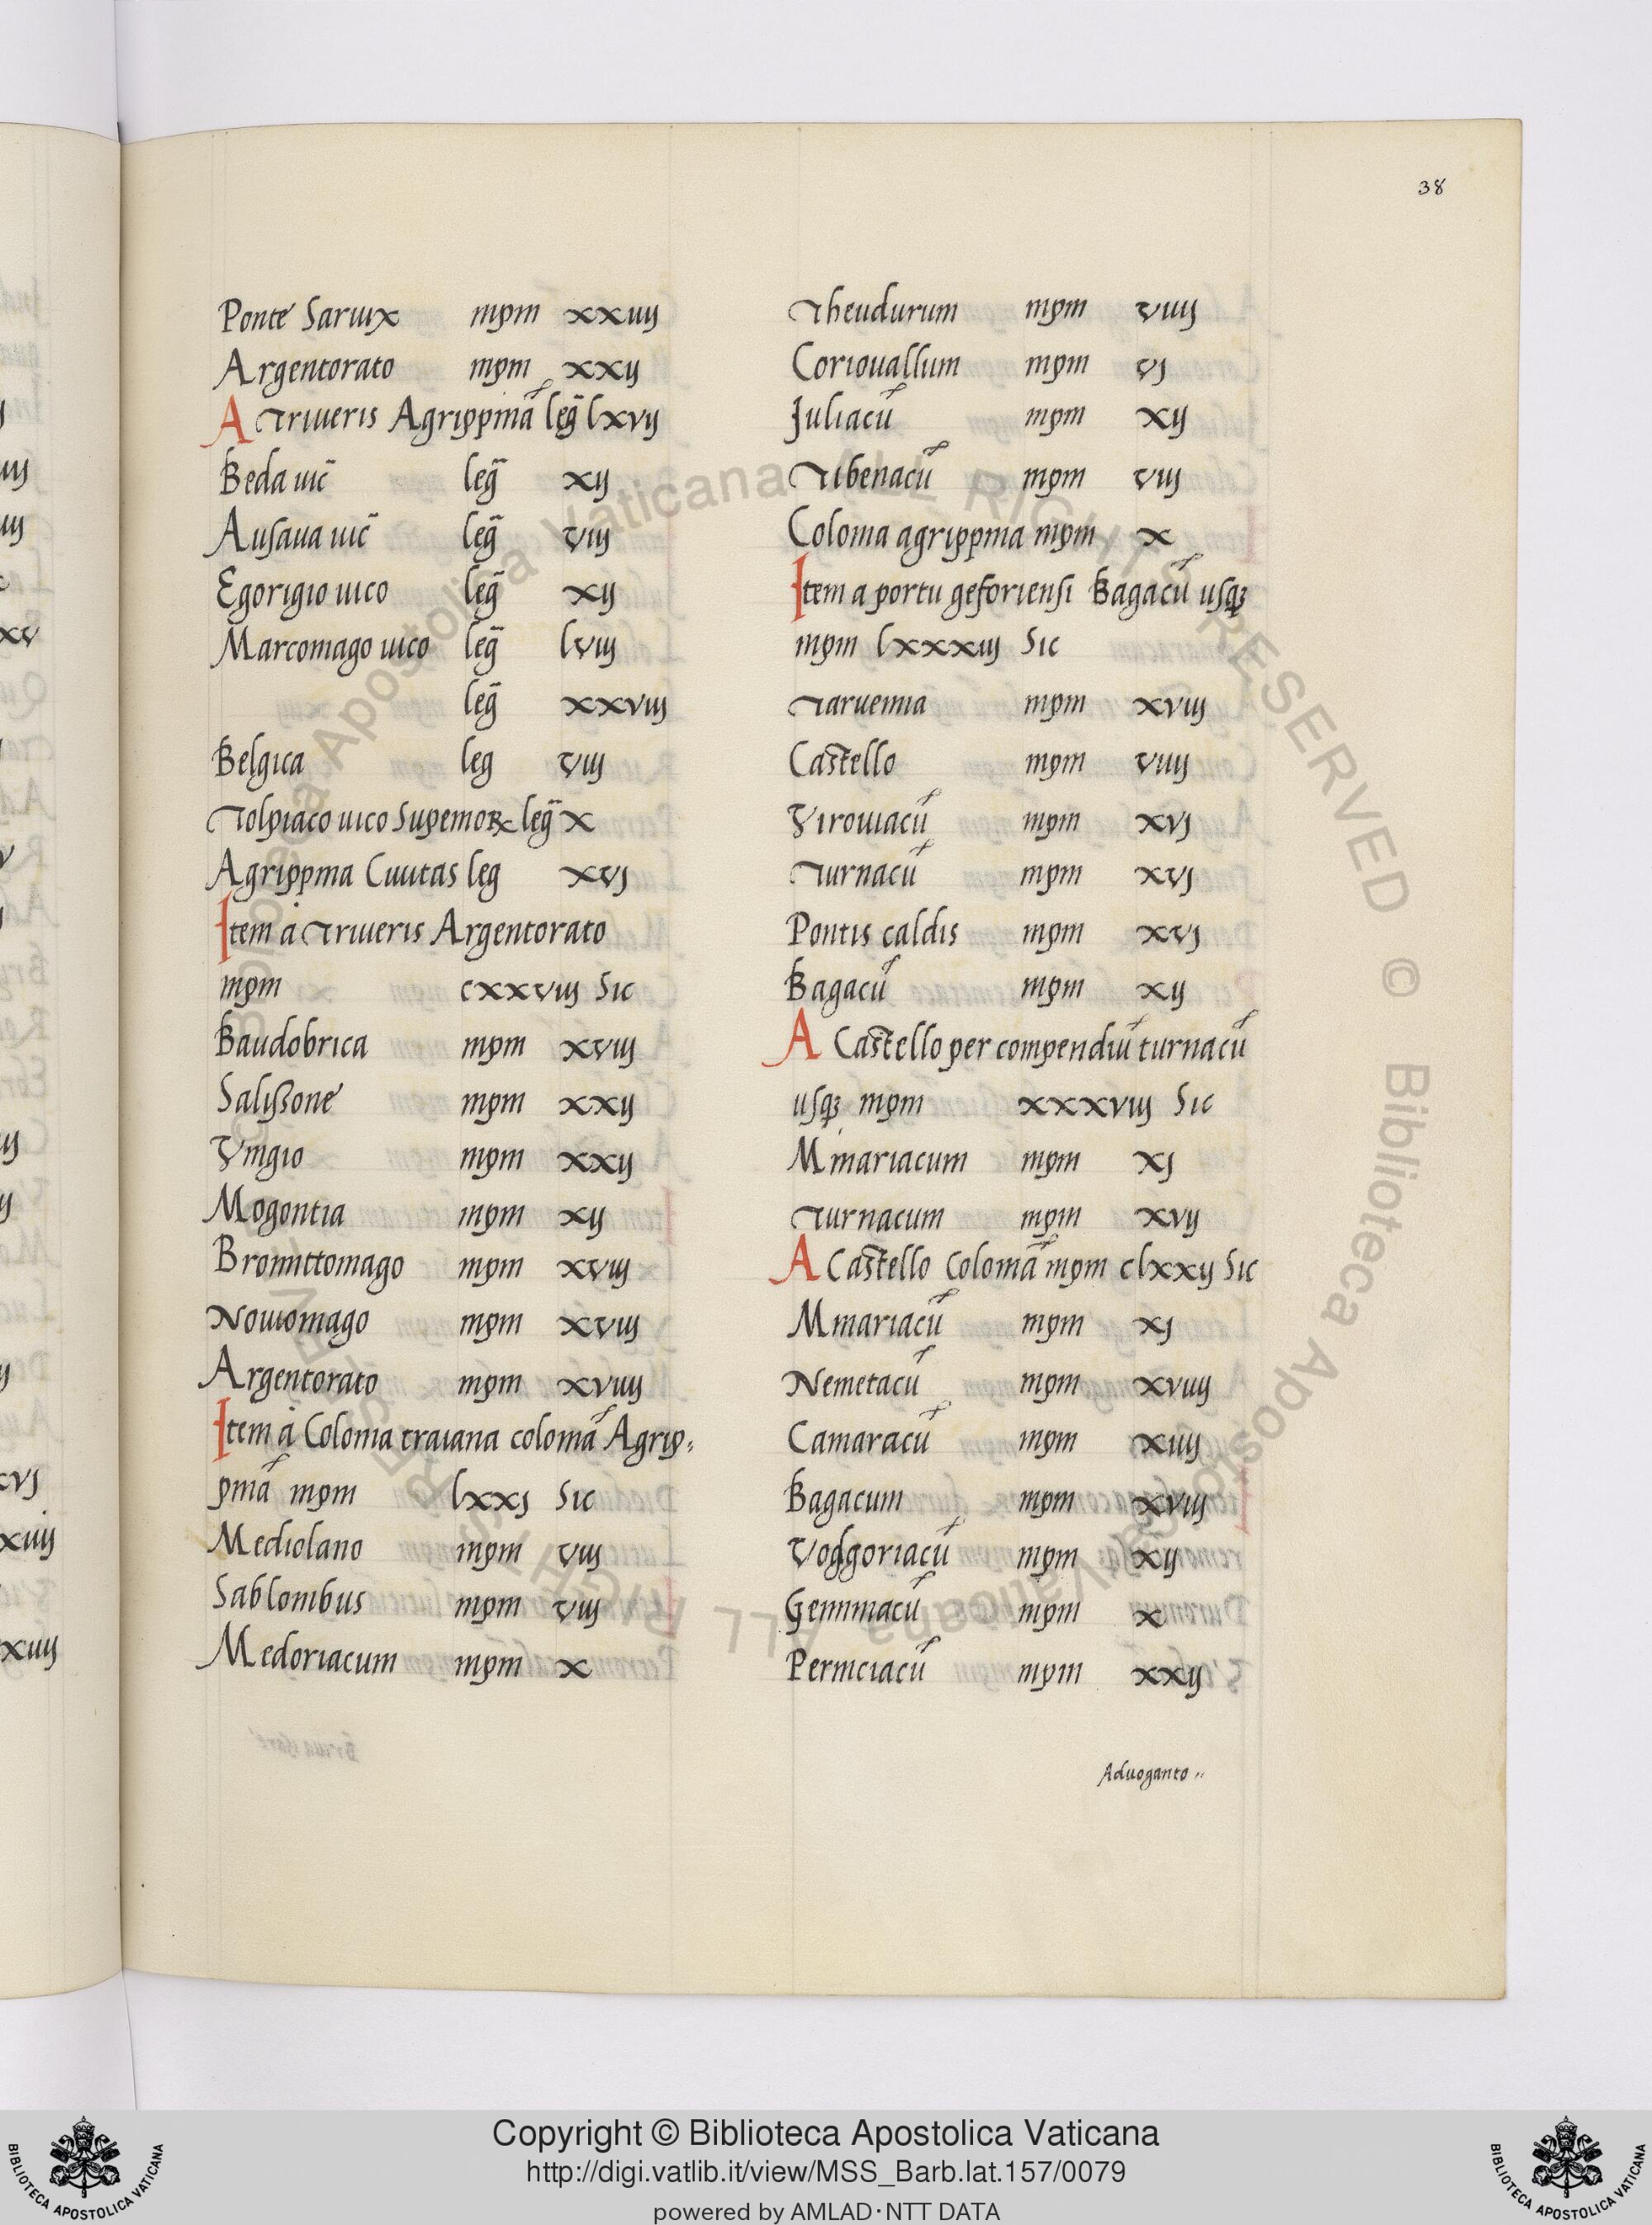 38
Ponte Sariux mpm xxiiij
Argentorato mpm xxij
A Triueris Agrippinā leḡ lxvij
Beda uic̄ leḡ xij
Ausaua uic̄ leḡ viij
Egorigio uico leḡ xij
Marcomago uico leḡ lviij
leḡ xxviij
Belgica leg viij
Tolpiaco uico Supernoꝝ leḡ x
Agrippina Ciuitas leg xvj
Item a Triueris Argentorato
mpm cxxviij Sic
Baudobrica mpm xviij
Salissone mpm xxij
Vingio mpm xxij
Mogontia mpm xij
Bronnittomago mpm xviij
Nouiomago mpm xviij
Argentorato mpm xviiij
Item a Colonia traiana coloniā Agrip-
pinā mpm lxxj Sic
Mediolano mpm viij
Sablonibus mpm viij
Medoriacum mpm x
Theudurum mpm viiij
Coriouallum mpm vj
Juliacū mpm xij
Tibenacū mpm viij
Colonia agrippina mpm x
Item a portu geforiensi Bagacū usqꝫ
mpm lxxxiij Sic
Taruenna mpm xviij
Castello mpm viiij
Virouiacū mpm xvj
Turnacū mpm xvj
Pontis caldis mpm xvj
Bagacū mpm xij
A Castello per compendiū turnacū
usqꝫ mpm xxxviij Sic
Minariacum mpm xj
Turnacum mpm xvij
A Castello Coloniā mpm clxxij Sic
Minariacū mpm xj
Nemetacū mpm xviiij
Camaracū mpm xiiij
Bagacum mpm xviij
Vodgoriacū mpm xij
Geminiacū mpm x
Perniciacū mpm xxij
Aduoganto
Copyright © Biblioteca Apostolica Vaticana
http://digi.vatlib.it/view/MSS_Barb.lat.157/0079
powered by AMLAD·NTT DATA